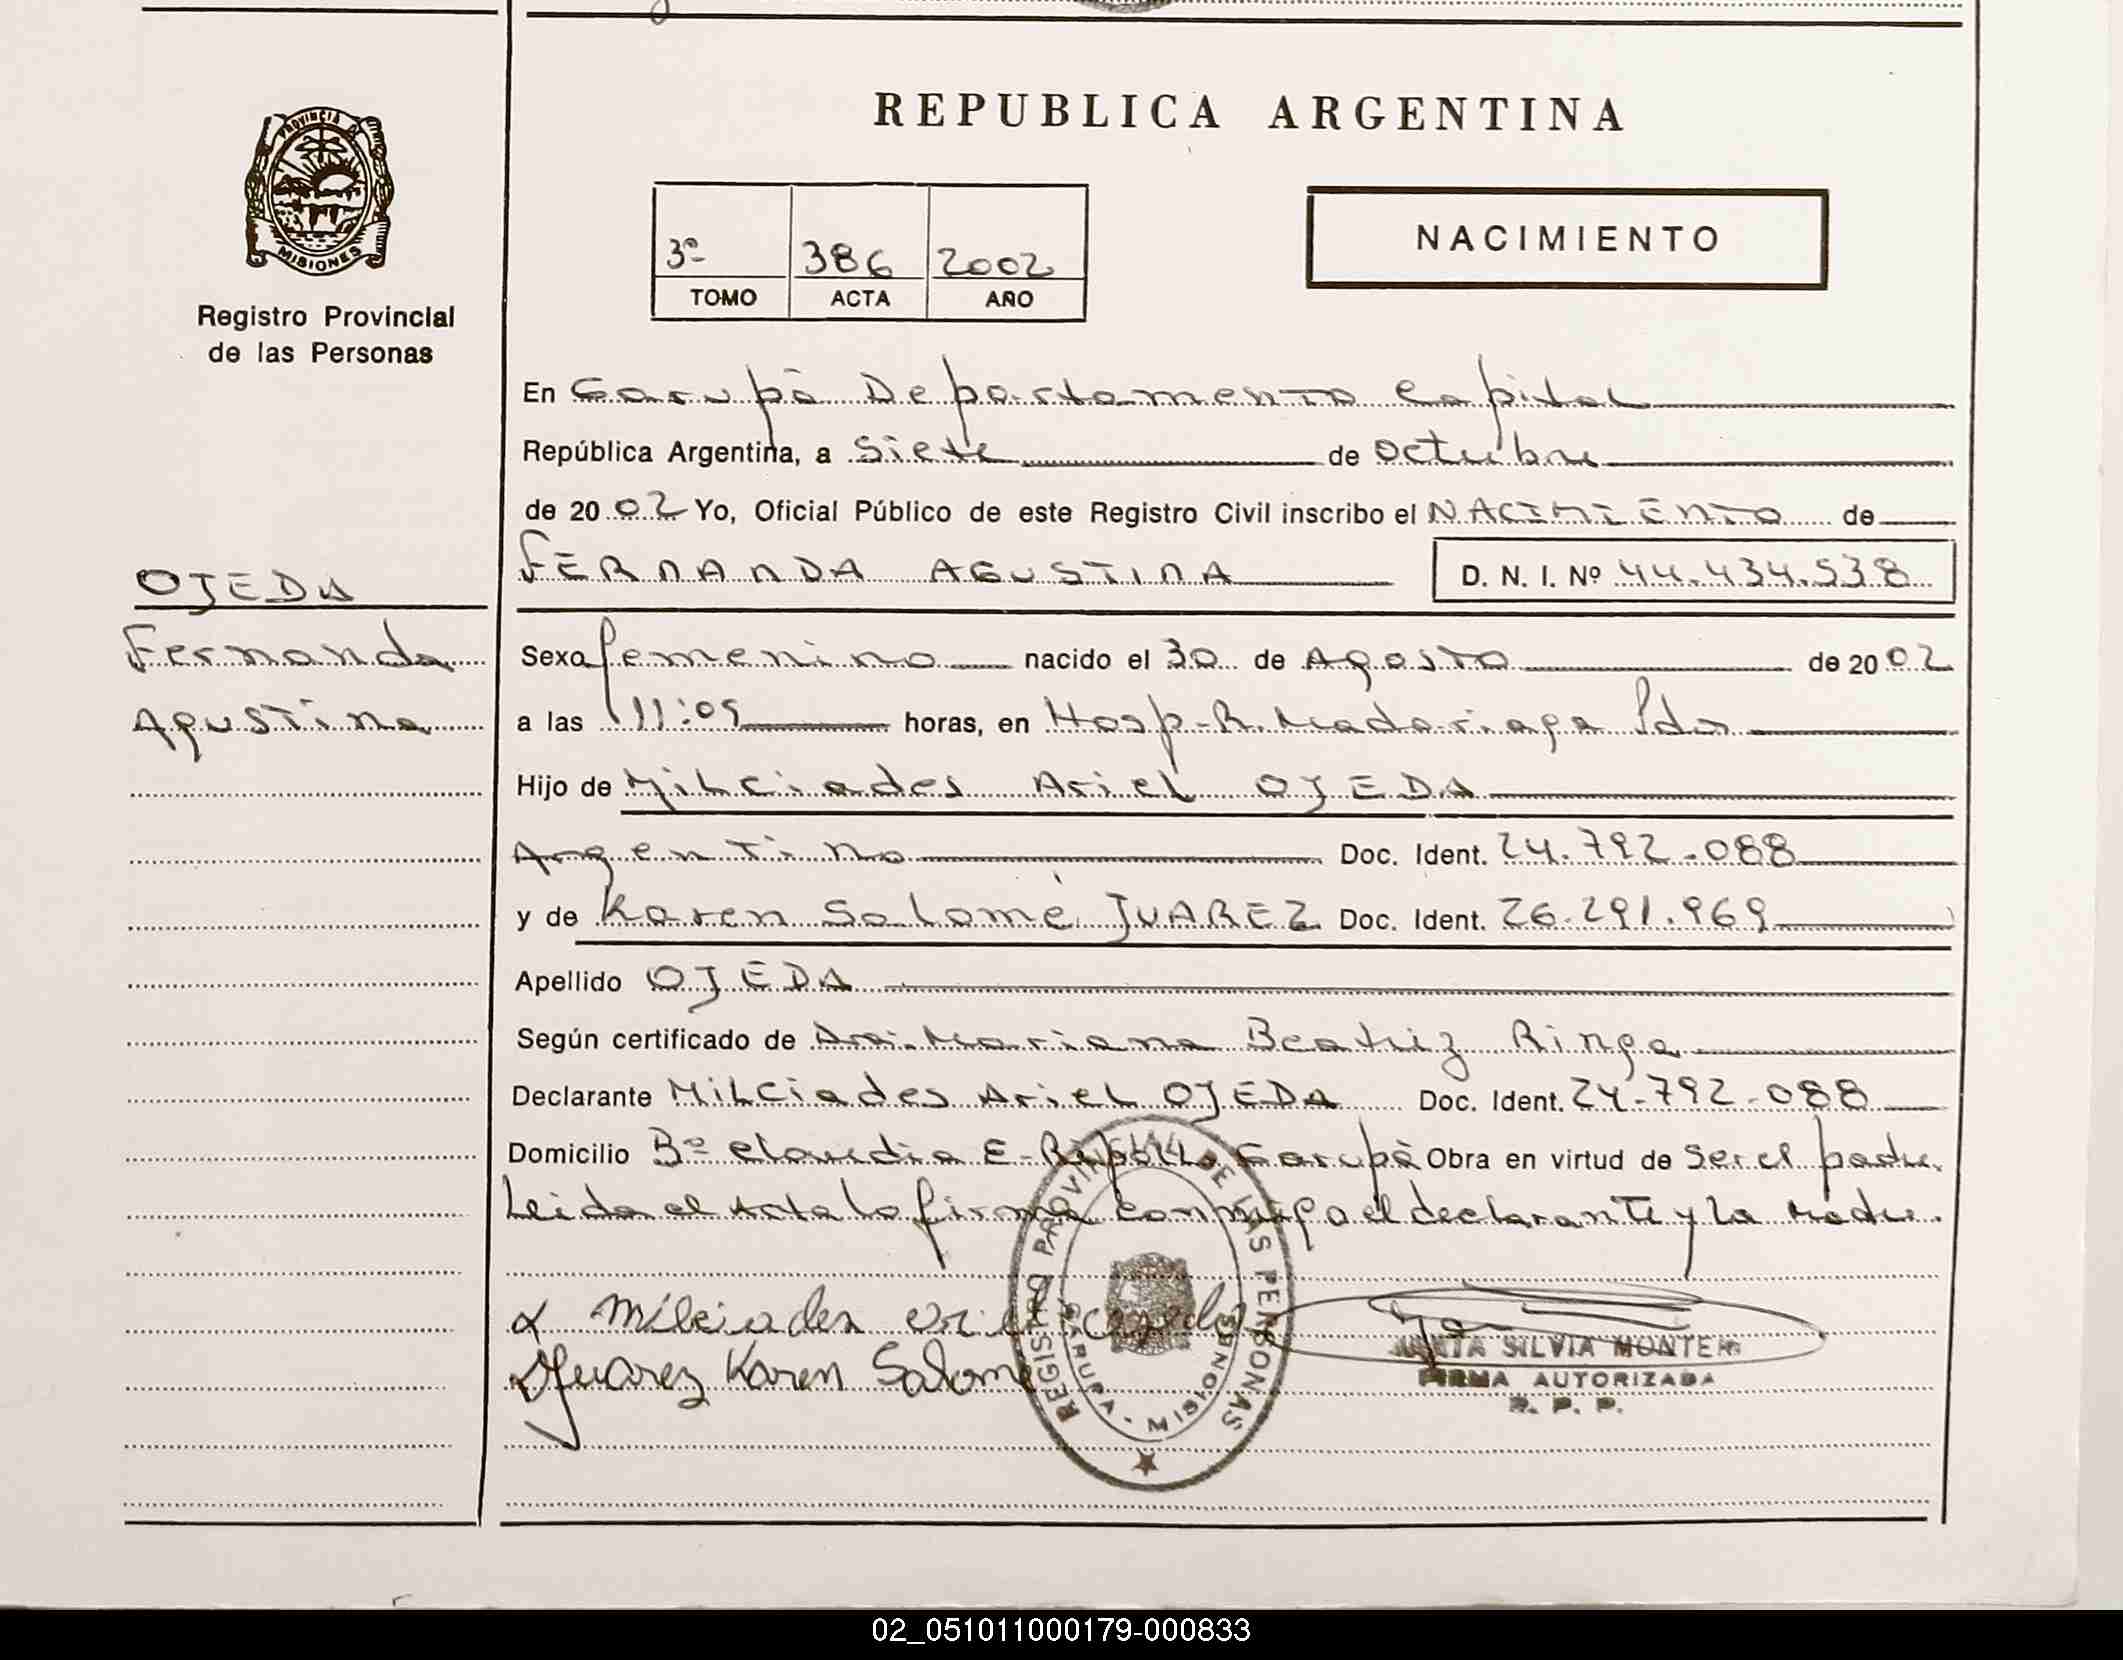 REPUBLICA ARGENTINA
PROVINCIA DE
MISIONES
Registro Provincial
de las Personas
3º 386 2002
TOMO ACTA AÑO
NACIMIENTO
En Garupá Departamento Capital
República Argentina, a Siete de Octubre
de 2002 Yo, Oficial Público de este Registro Civil inscribo el NACIMIENTO de
FERNANDA AGUSTINA D. N. I. Nº 44.434.538
OJEDA
Fernanda
Agustina
Sexo femenino nacido el 30 de Agosto de 2002
a las 11:05 horas, en Hosp-R. Madariaga Pdas
Hijo de Milciades Ariel OJEDA
Argentino Doc. Ident. 24.792.088
y de Karen Salomé JUAREZ Doc. Ident. 26.291.969
Apellido OJEDA
Según certificado de Dra. Mariana Beatriz Ringa
Declarante Milciades Ariel OJEDA Doc. Ident. 24.792.088
Domicilio Bº Claudia E- Garupá Obra en virtud de Ser el padre.
Leida el Acta la firma conmigo el declarante y la Madre.
Milciades Ariel Ojeda
Juarez Karen Salomé
REGISTRO PROVINCIAL DE LAS PERSONAS
GARUPA - MISIONES
SILVIA MONTERO
FIRMA AUTORIZADA
R. P. P.
02_051011000179-000833